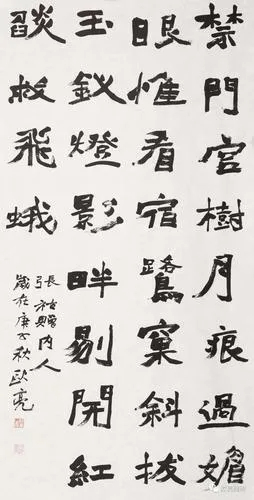 禁門宮樹月痕過媚
眼惟看宿鷺窠斜拔
玉釵燈影畔剔開紅
燄救飛蛾
張祜贈内人
歲在庚子秋歐亮